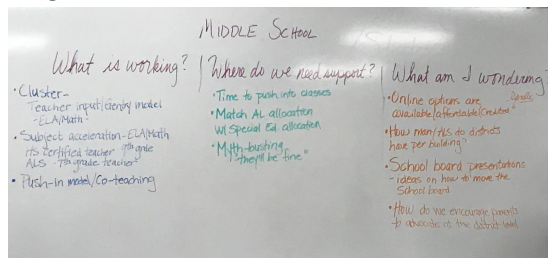 MIDDLE SCHOOL
What is working?
• Cluster-
Teacher input/identity model
-ELA/Math
• Subject acceleration-ELA/Math
its certified teacher 7th grade
ALS - 7th grade teacher
• Push-in model/Co-teaching
Where do we need support?
• Time to push into classes
• Match AL allocation
w/ Special Ed. allocation
• Myth-busting
"they'll be fine"
What am I wondering?
• Online options are
available/affordable/
• How many ALS do districts
have per building?
• School board presentations
- ideas on how to move the
School board
• How do we encourage parents
to advocate at the district level